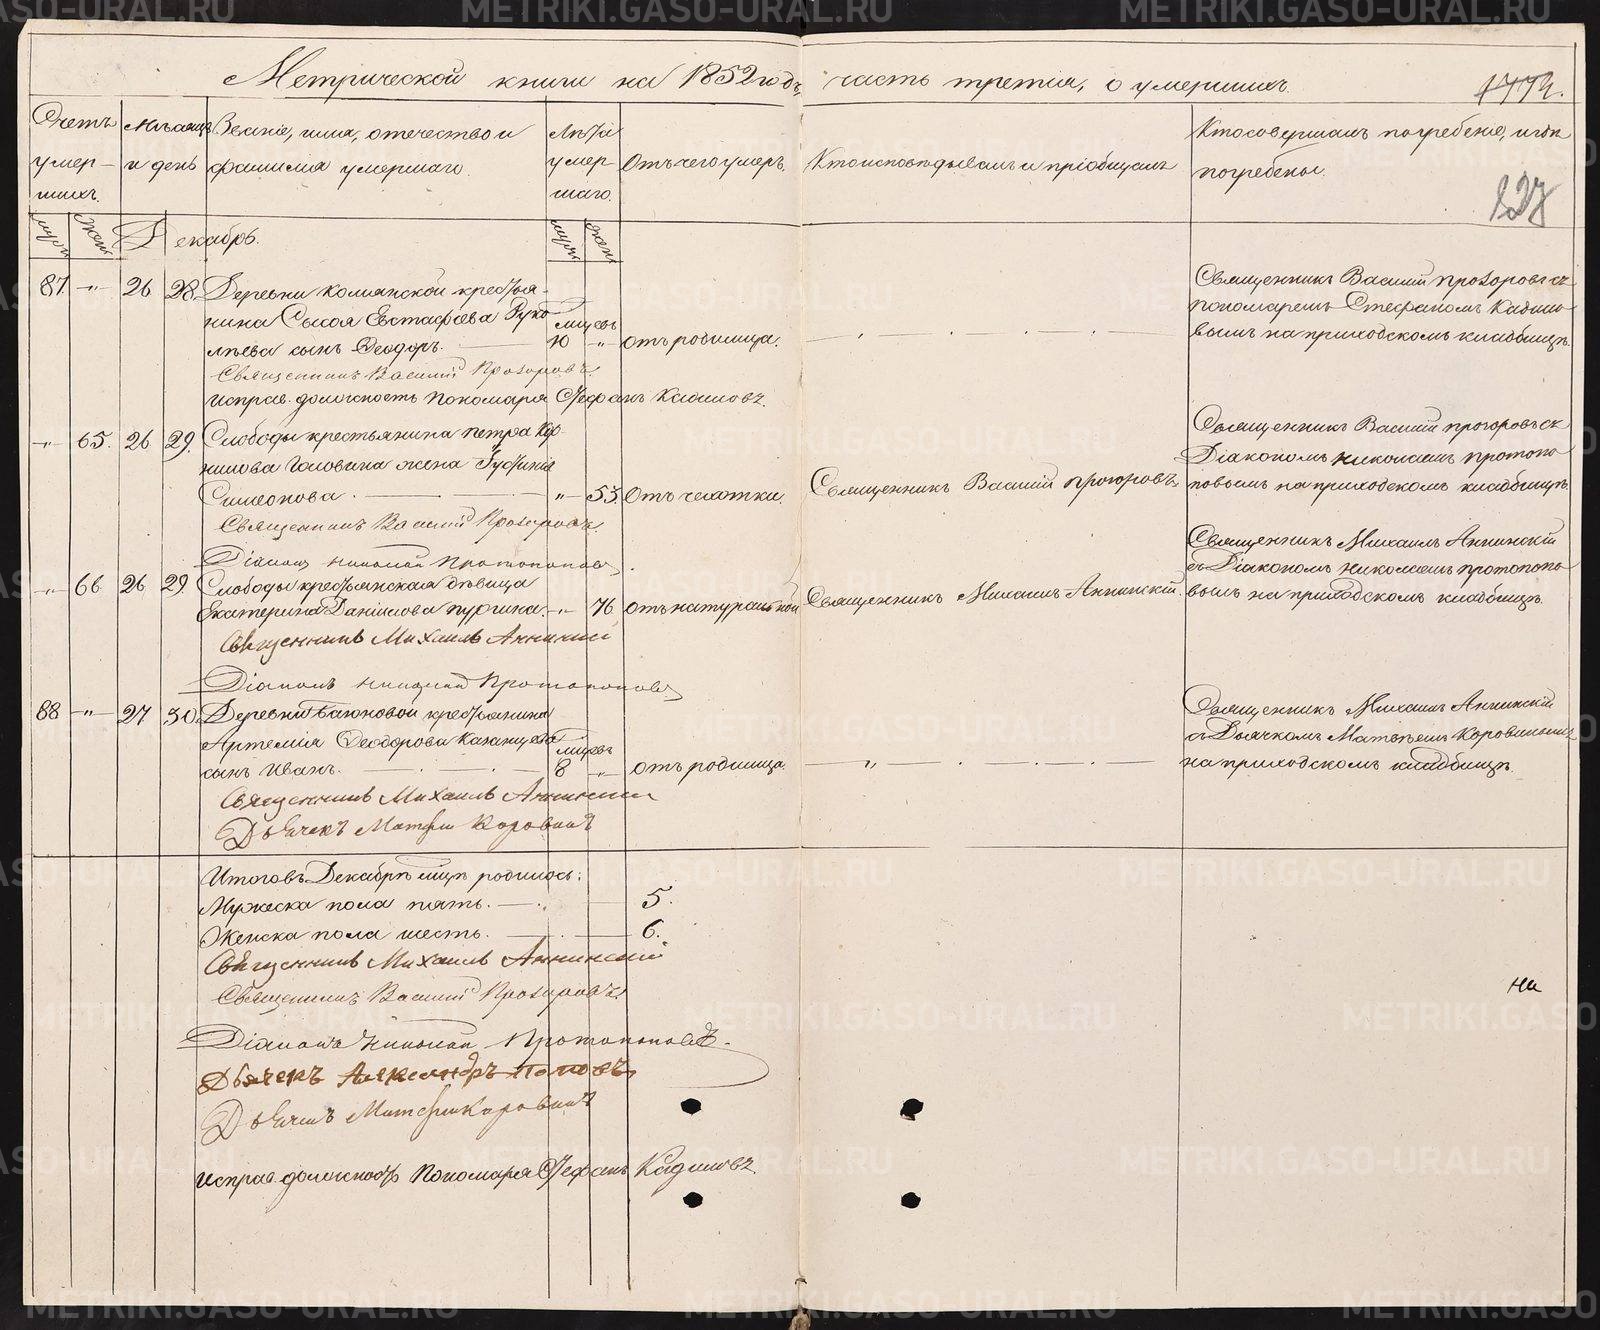 Метрической книги на 1852 годъ, часть третія, о умершихъ.
Счетъ умер- шихъ.
Мѣсяцъ и день
Званіе, имя, отечество и фамилія умершаго.
Лѣта умер- шаго.
Отъ чего умеръ.
Кто исповѣдывалъ и пріобщалъ
Кто совершалъ погребеніе, и гдѣ погребены.
127
Декабрь.
87 " 26 28 Деревни крестья-
нина Сысоя Евстафіева
сынъ Ѳеодоръ.
мѣсяцъ
10 " отъ родимца.
Священникъ Василій Прозоровъ съ
пономаремъ Стефаномъ Кадило-
вымъ на приходскомъ кладбищѣ.
Священникъ Василій Прозоровъ
Исправ. должность Пономаря Стефанъ Кадиловъ.
" 65. 26 29. Слободы крестьянина Петра Кор-
нилова Головина жена Іустинія
Симеонова. " 53 Отъ чехотки.
Священникъ Василій Прозоровъ
Священникъ Василій Прозоровъ съ
Діакономъ Николаемъ Протопо-
повымъ на приходскомъ кладбищѣ.
Священникъ Василій Прозоровъ
Діаконъ Николай Протопоповъ
" 66 26 29. Слободы крестьянская дѣвица
Екатерина Данилова " 76 отъ натуральной
Священникъ Михаилъ Аннинскій.
Священникъ Михаилъ Аннинскій
съ Діакономъ Николаемъ Протопопо-
вымъ на приходскомъ кладбищѣ.
Священникъ Михаилъ Аннинскій
Діаконъ Николай Протопоповъ
88 " 27 30. Деревни крестьянина
Артемія Ѳеодорова Казанцева
сынъ Иванъ.
мѣсяцъ
8 " отъ родимца.
Священникъ Михаилъ Аннинскій
съ Дьячкомъ Матвѣемъ Коровинымъ
на приходскомъ кладбищѣ.
Священникъ Михаилъ Аннинскій
Дьячекъ Матфей Коровинъ
Итого въ Декабрѣ мцѣ родилось:
Мужеска пола пять. 5.
Женска пола шесть. 6.
Священникъ Михаилъ Аннинскій
Священникъ Василій Прозоровъ
на
Діаконъ Николай Протопоповъ.
Дьячекъ Александръ Поповъ
Дьячекъ Матфей Коровинъ
Исправ. должность Пономаря Стефанъ Кадиловъ.
METRIKI.GASO-URAL.RU